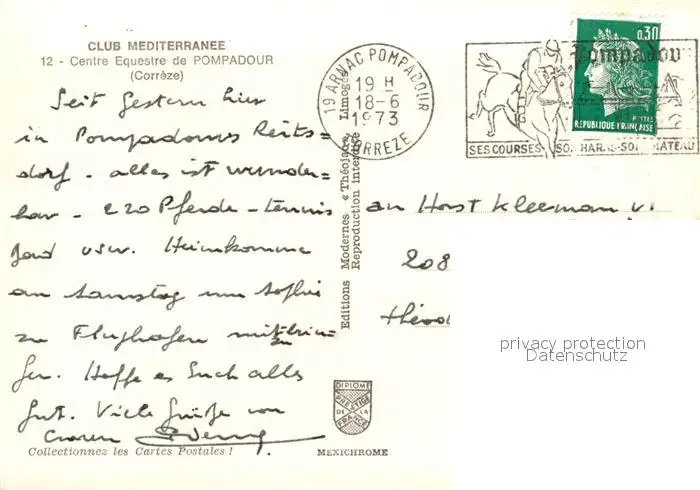 CLUB MEDITERRANEE
12 - Centre Equestre de POMPADOUR
(Corrèze)
Seit Gestern hier
in Pompadours Reits=
dorf - alles ist wunder=
bar - 220 Pferde - Tennis
usw. Heimkomme
am Samstag um
zu Flughafen mitbrin=
gen. Hoffe es Euch alles
gut. Viele Grüße von
Collectionnez les Cartes Postales !
Editions Modernes « Théojac », Limoges
Reproduction interdite
DIPLOME
PRESTIGE
DE LA
FRANCE
MEXICHROME
19 ARNAC POMPADOUR
19 H
18-6
1973
CORREZE
Pompadour
SES COURSES - SON HARAS - SON CHATEAU
0,30
POSTES
REPUBLIQUE FRANÇAISE
an Horst Kleeman
208
privacy protection
Datenschutz